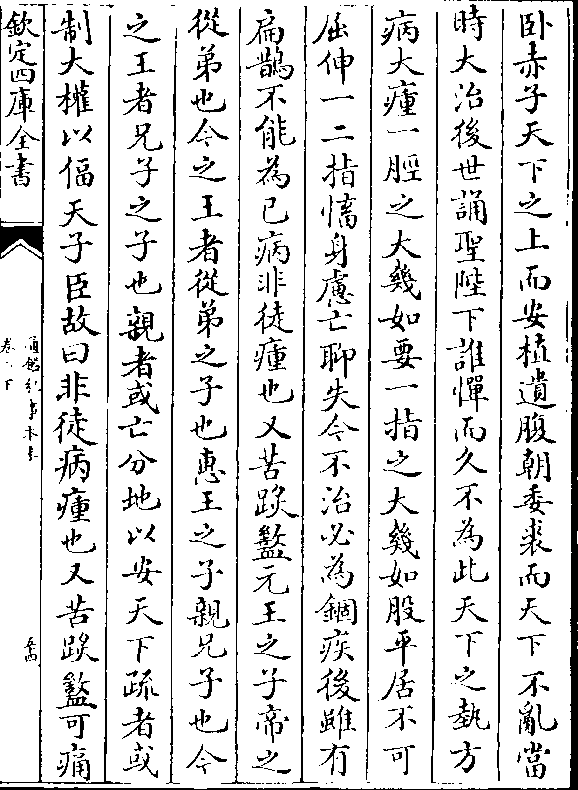 卧赤子天下之上而安植遺腹朝委裘而天下不亂當
時大治後世誦聖陛下誰憚而久不為此天下之埶方
病大瘇一脛之大幾如要一指之大幾如股平居不可
屈伸一二指慉身慮亡聊失今不治必為錮疾後雖有
扁鵲不能為已病非徒瘇也又苦䟣盭元王之子帝之
從弟也今之王者從弟之子也惠王之子親兄子也今
之王者兄子之子也親者或亡分地以安天下疏者或
制大權以偪天子臣故曰非徒病瘇也又苦䟣盭可痛
欽定四庫全書
通鑑紀事本末